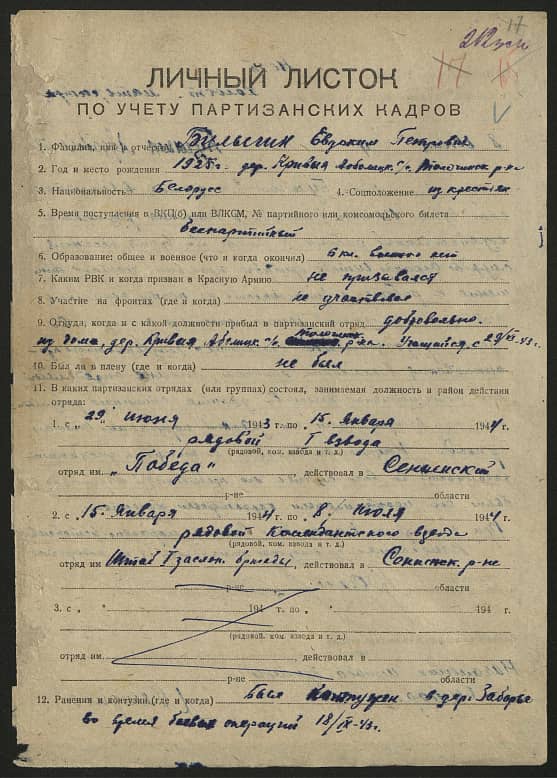 17
17
ЛИЧНЫЙ ЛИСТОК
ПО УЧЕТУ ПАРТИЗАНСКИХ КАДРОВ
1. Фамилия, имя и отчество Евдоким Петрович
2. Год и место рождения 1925 г. дер. Кривыя с/с. р-на
3. Национальность Белорус 4. Соцположение из крестьян
5. Время поступления в ВКП(б) или ВЛКСМ, № партийного или комсомольского билета
Беспартийный
6. Образование: общее и военное (что и когда окончил) 6 кл. военного нет
7. Каким РВК и когда призван в Красную Армию не призывался
8. Участие на фронтах (где и когда) не участвовал
9. Откуда, когда и с какой должности прибыл в партизанский отряд добровольно.
из дома, дер. Кривыя с/с. р-на. Учащийся, с 29/
10. Был ли в плену (где и когда) не был
11. В каких партизанских отрядах (или группах) состоял, занимаемая должность и район действия
отряда:
1. с „ 29 " июня 1943 г. по 15 Января 1944 г.
рядовой I взвода
(рядовой, ком. взвода и т. д.)
отряд им. „Победа" действовал в Сенненский
р-не области
2. с 15 Января 1944 г. по 8 Июля 1944 г.
рядовой Комендантского взвода
(рядовой, ком. взвода и т. д.)
отряд им. Штаб бригады, действовал в р-не
р-не области
3. с 194 г. по 194 г.
(рядовой, ком. взвода и т. д.)
отряд им. действовал в
р-не области
12. Ранения и контузии (где и когда) Был Контужен в дер. Заборье
во время боевых операций 18/IX-43 г.